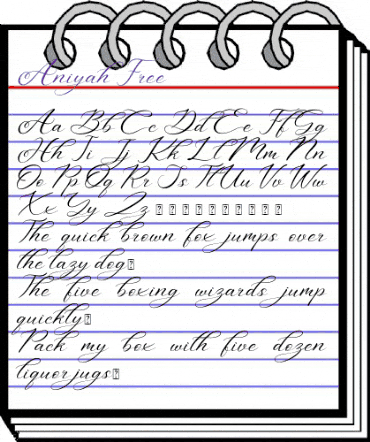 Aniyah Free
Aa Bb Cc Dd Ee Ff Gg
Hh Ii Jj Kk Ll Mm Nn
Oo Pp Qq Rr Ss Tt Uu Vv Ww
Xx Yy Zz
The quick brown fox jumps over
the lazy dog
The five boxing wizards jump
quickly
Pack my box with five dozen
liquor jugs